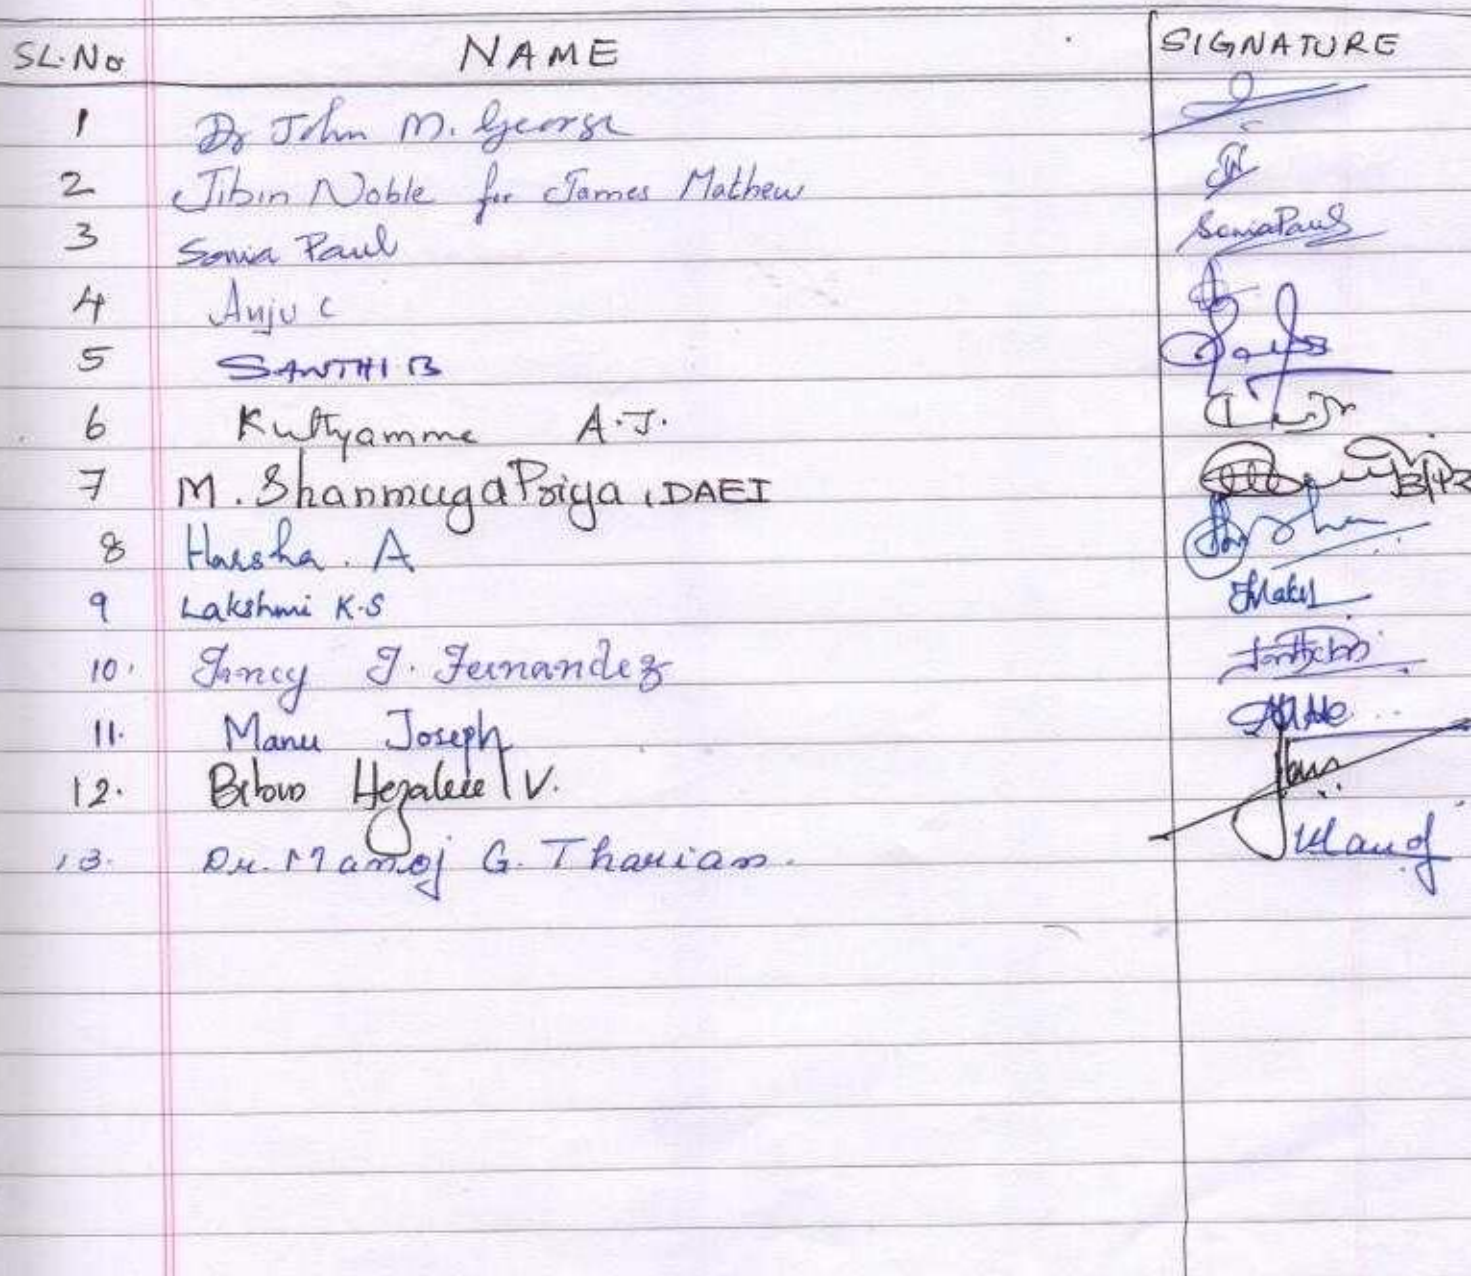 SL.No NAME SIGNATURE
1 Dr John M. George
2 Jibin Noble for James Mathew
3 Sonia Paul SoniaPaul
4 Anju C
5 SANTHI B
6 Kuttyamma A.J.
7 M. ShanmugaPriya, DAEI
8 Harsha. A Harsha
9 Lakshmi K.S
10. Jancy J. Fernandez
11. Manu Joseph
12. V.
13. Dr. Manoj G. Tharian. Manoj